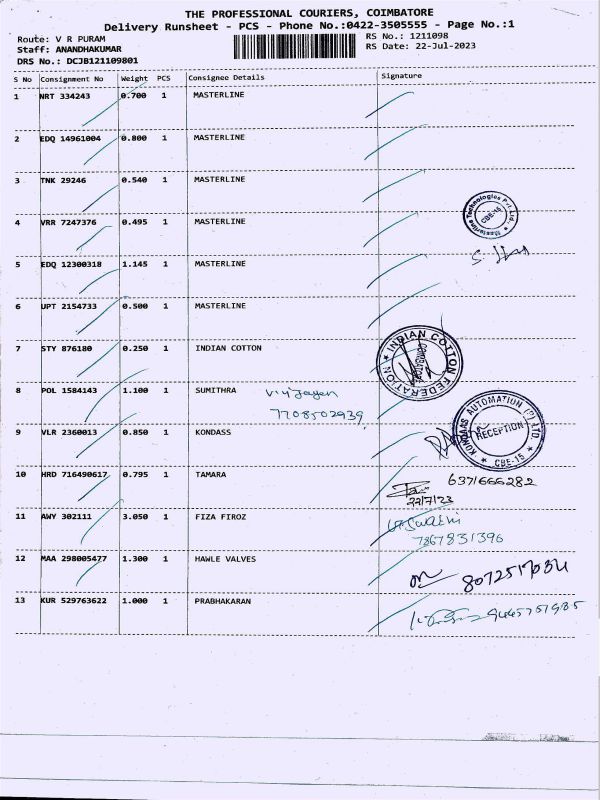 THE PROFESSIONAL COURIERS, COIMBATORE
Delivery Runsheet - PCS - Phone No.:0422-3505555 - Page No.:1
Route: V R PURAM RS No.: 1211098
Staff: ANANDHAKUMAR RS Date: 22-Jul-2023
DRS No.: DCJB121109801
S No Consignment No Weight PCS Consignee Details Signature
1 NRT 334243 0.700 1 MASTERLINE
2 EDQ 14961004 0.800 1 MASTERLINE
3 TNK 29246 0.540 1 MASTERLINE
4 VRR 7247376 0.495 1 MASTERLINE
Masterline Technologies Pvt. Ltd.,
CBE-15
5 EDQ 12300318 1.145 1 MASTERLINE
6 UPT 2154733 0.500 1 MASTERLINE
7 STY 876180 0.250 1 INDIAN COTTON
INDIAN COTTON FEDERATION
COIMBATORE
8 POL 1584143 1.100 1 SUMITHRA
7708502939
9 VLR 2360013 0.850 1 KONDASS
KONDAAS AUTOMATION (P) LTD
RECEPTION
CBE-15
10 HRD 716490617 0.795 1 TAMARA 6371666282
22/7/23
11 AWY 302111 3.050 1 FIZA FIROZ
7867831396
12 MAA 298005477 1.300 1 HAWLE VALVES
13 KUR 529763622 1.000 1 PRABHAKARAN